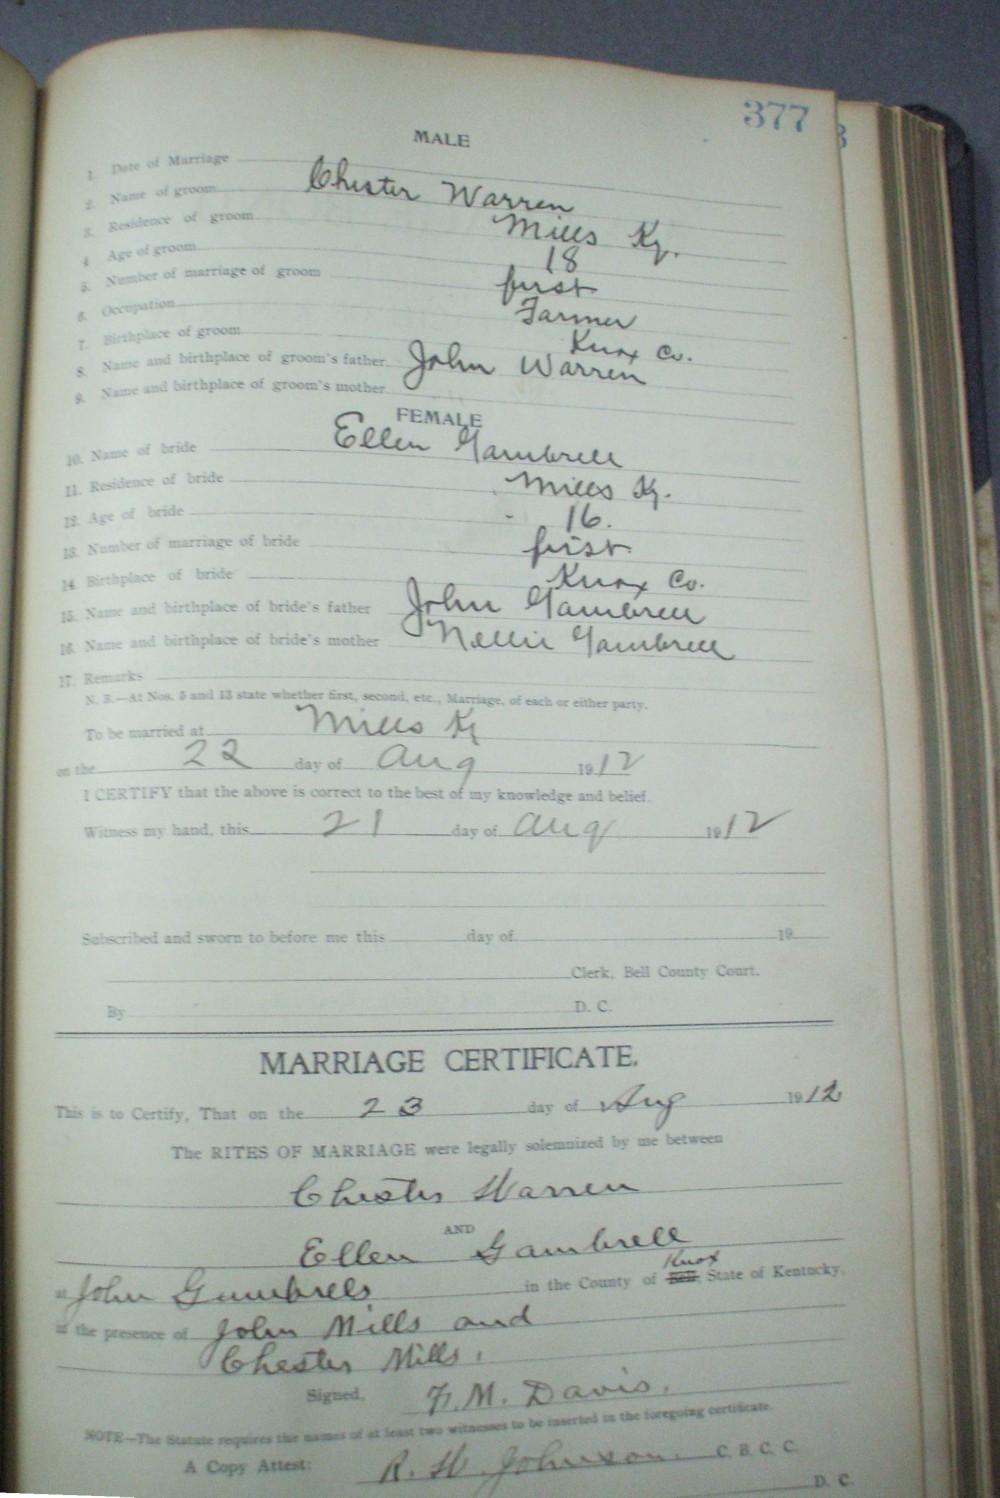 377
MALE
1. Date of Marriage
2. Name of groom Chester Warren
3. Residence of groom Mills Ky.
4 Age of groom 18
5. Number of marriage of groom first
6. Occupation Farmer
7. Birthplace of groom Knox Co.
8. Name and birthplace of groom's father John Warren
9. Name and birthplace of groom's mother
FEMALE
10. Name of bride Ellen Gambrell
11. Residence of bride Mills Ky.
12. Age of bride 16.
13. Number of marriage of bride first
14. Birthplace of bride Knox Co.
15. Name and birthplace of bride's father John Gambrell
16. Name and birthplace of bride's mother Nellie Gambrell
17. Remarks
N. B.—At Nos. 5 and 13 state whether first, second, etc., Marriage, of each or either party.
To be married at Mills Ky
on the 22 day of Aug 1912
I CERTIFY that the above is correct to the best of my knowledge and belief.
Witness my hand, this 21 day of Aug 1912
Subscribed and sworn to before me this day of 19
Clerk, Bell County Court.
By D. C.
MARRIAGE CERTIFICATE.
This is to Certify, That on the 23 day of Aug 1912
The RITES OF MARRIAGE were legally solemnized by me between
Chester Warren
AND
Ellen Gambrell
Knox
at John Gambrells in the County of Bell, State of Kentucky,
in the presence of John Mills and
Chester Mills.
Signed, F. M. Davis.
NOTE—The Statute requires the names of at least two witnesses to be inserted in the foregoing certificate.
A Copy Attest: R. W. Johnson C. B. C. C.
D. C.